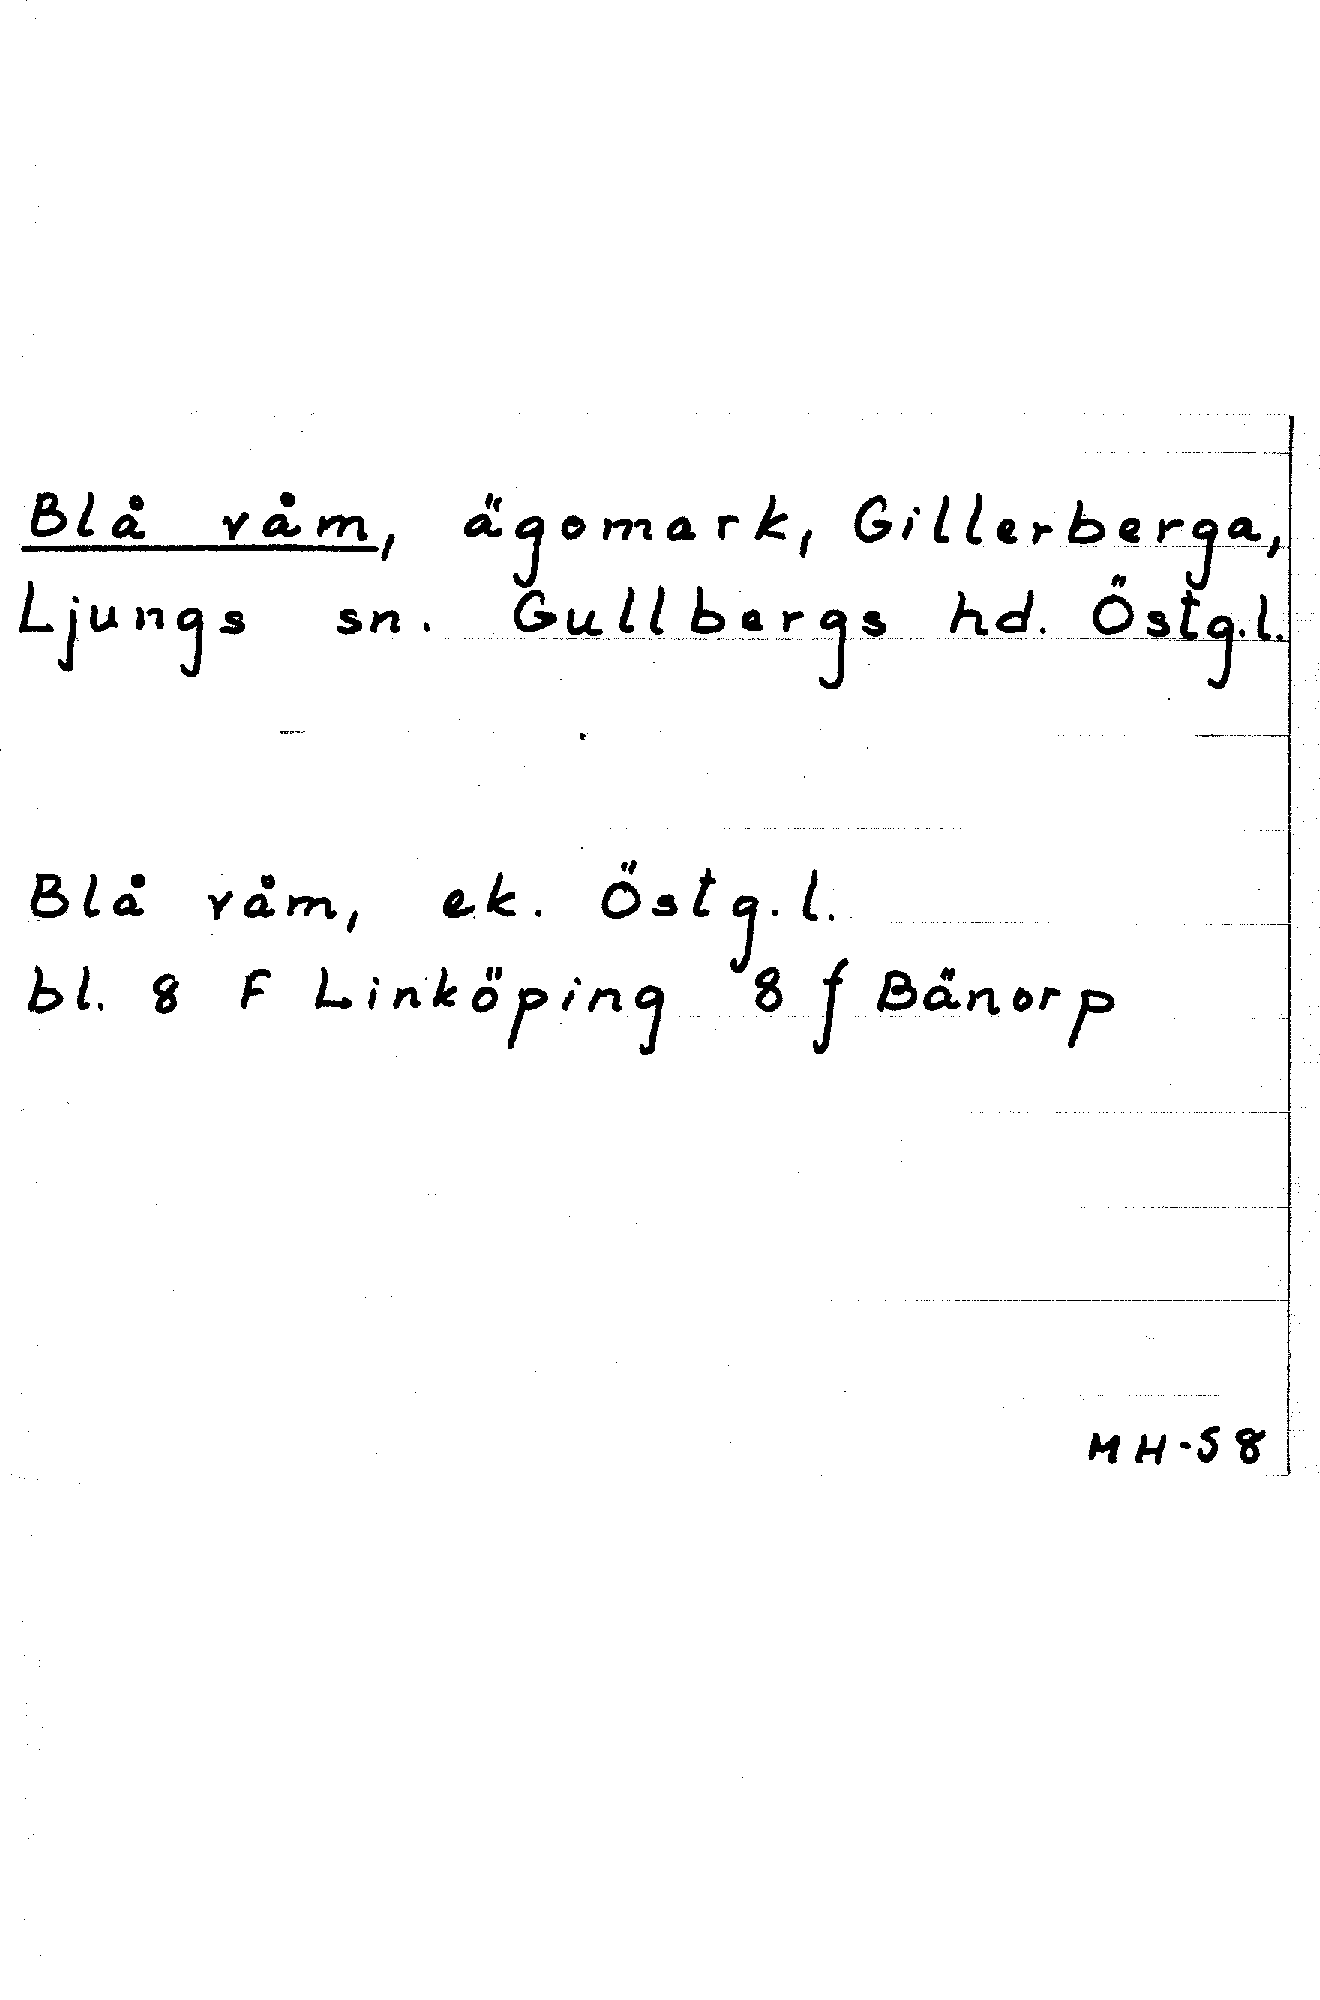 Blå våm, ägomark, Gillerberga,
Ljungs sn. Gullbergs hd. Östg.l.
Blå våm, ek. Östg.l.
bl. 8 F Linköping 8 f Bänorp
MH-58